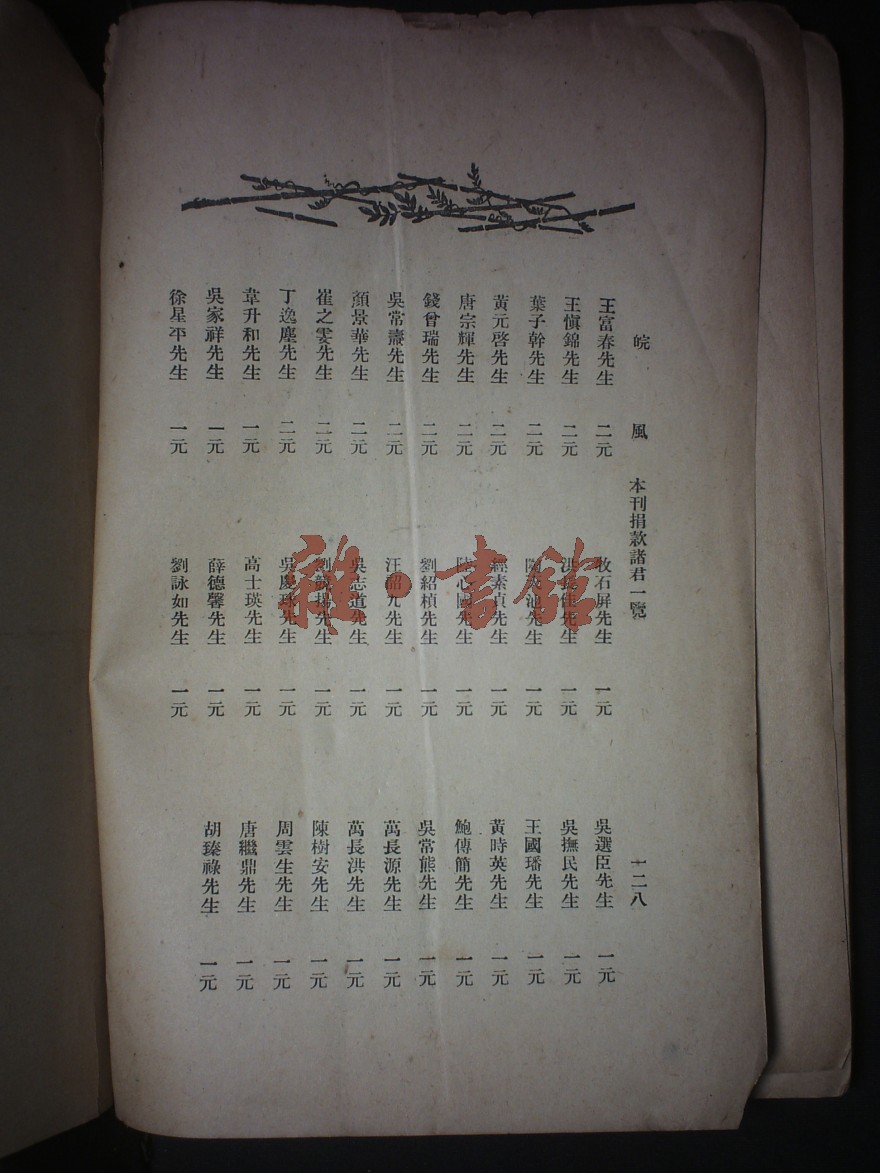 皖風 本刊捐款諸君一覽 一二八
王富春先生 二元
王愼錦先生 二元
葉子幹先生 二元
黃元啓先生 二元
唐宗輝先生 二元
錢曾瑞先生 二元
吳常燾先生 二元
顏景華先生 二元
崔之雯先生 二元
丁逸塵先生 二元
韋升和先生 一元
吳家祥先生 一元
徐星平先生 一元
石屏先生 一元
先生 一元
先生 一元
素貞先生 一元
心國先生 一元
劉紹楨先生 一元
汪先生 一元
吳志道先生 一元
劉競揚先生 一元
吳慶球先生 一元
高士瑛先生 一元
薛德馨先生 一元
劉詠如先生 一元
吳選臣先生 一元
吳撫民先生 一元
王國璠先生 一元
黃時英先生 一元
鮑傳簡先生 一元
吳常熊先生 一元
萬長源先生 一元
萬長洪先生 一元
陳樹安先生 一元
周雲生先生 一元
唐繼鼎先生 一元
胡臻祿先生 一元
雜·書館